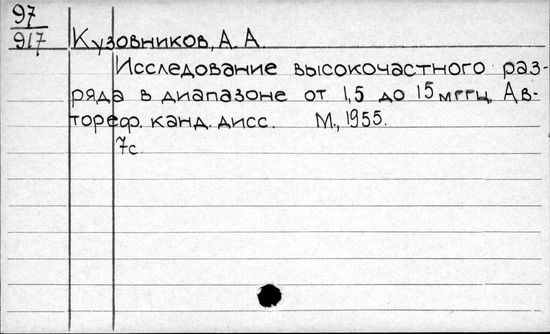 97
917 Кузовников, А. А.
Исследование высокочастного раз-
ряда в диапазоне от 1,5 до 15 мггц, Ав-
тореф. канд. дисс. М., 1955.
7с.